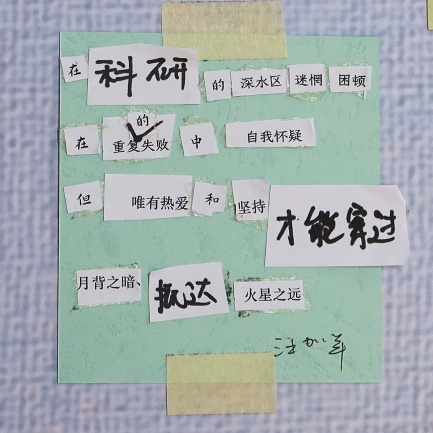 在科研的深水区迷惘困顿
在的重复失败中自我怀疑
但唯有热爱和坚持才能穿过
月背之暗、抵达火星之远